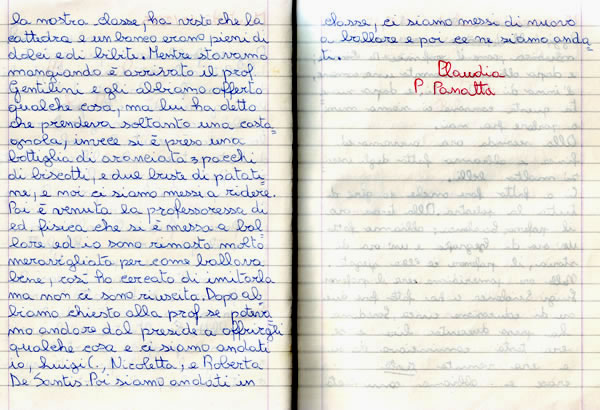 la nostra classe, ho visto che la
cattedra e un banco erano pieni di
dolci e di bibite. Mentre stavamo
mangiando è arrivato il prof.
Gentilini e gli abbiamo offerto
qualche cosa, ma lui ha detto
che prendeva soltanto una casta=
gnola, invece si è preso una
bottiglia di aranciata 3 pacchi
di biscotti, e due buste di patati=
ne, e noi ci siamo messi a ridere.
Poi è venuta la professoressa di
ed. fisica che si è messa a bal=
lare ed io sono rimasta molto
meravigliata per come ballava
bene, così ho cercato di imitarla
ma non ci sono riuscita. Dopo ab=
biamo chiesto alla prof se poteva=
mo andare dal preside a offrirgli
qualche cosa e ci siamo andati
io, Luigi C., Nicoletta, e Roberta
De Santis. Poi siamo andati in
classe, ci siamo messi di nuovo
a ballare e poi ce ne siamo anda=
ti.
Claudia
P. Panatta